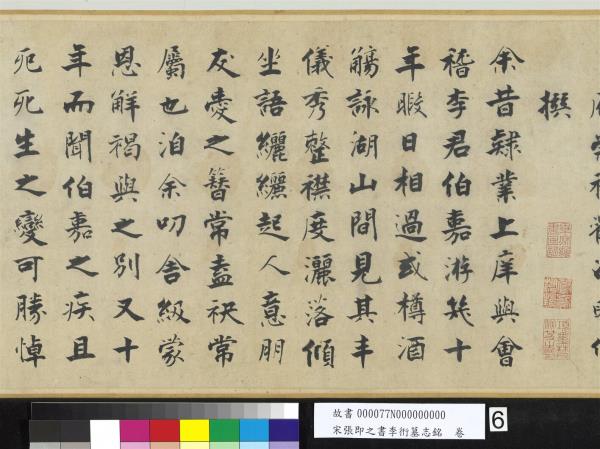 撰
余昔隸業上庠與會
稽李君伯嘉游幾十
年暇日相過或樽酒
觴詠湖山間見其丰
儀秀整襟度灑落傾
坐語纚纚起人意朋
友愛之簪常盍袂常
屬也洎余叨舍級蒙
恩解褐與之別又十
年而聞伯嘉之疾且
死死生之變可勝悼
故書 000077N000000000
宋張即之書李衎墓志銘 卷
6